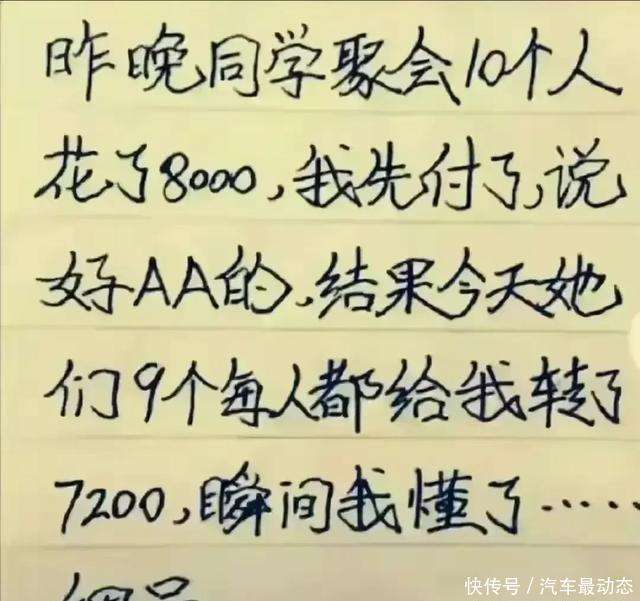 昨晚同学聚会10个人
花了8000,我先付了,说
好AA的,结果今天她
们9个每人都给我转了
7200,瞬间我懂了……
快传号/汽车最动态